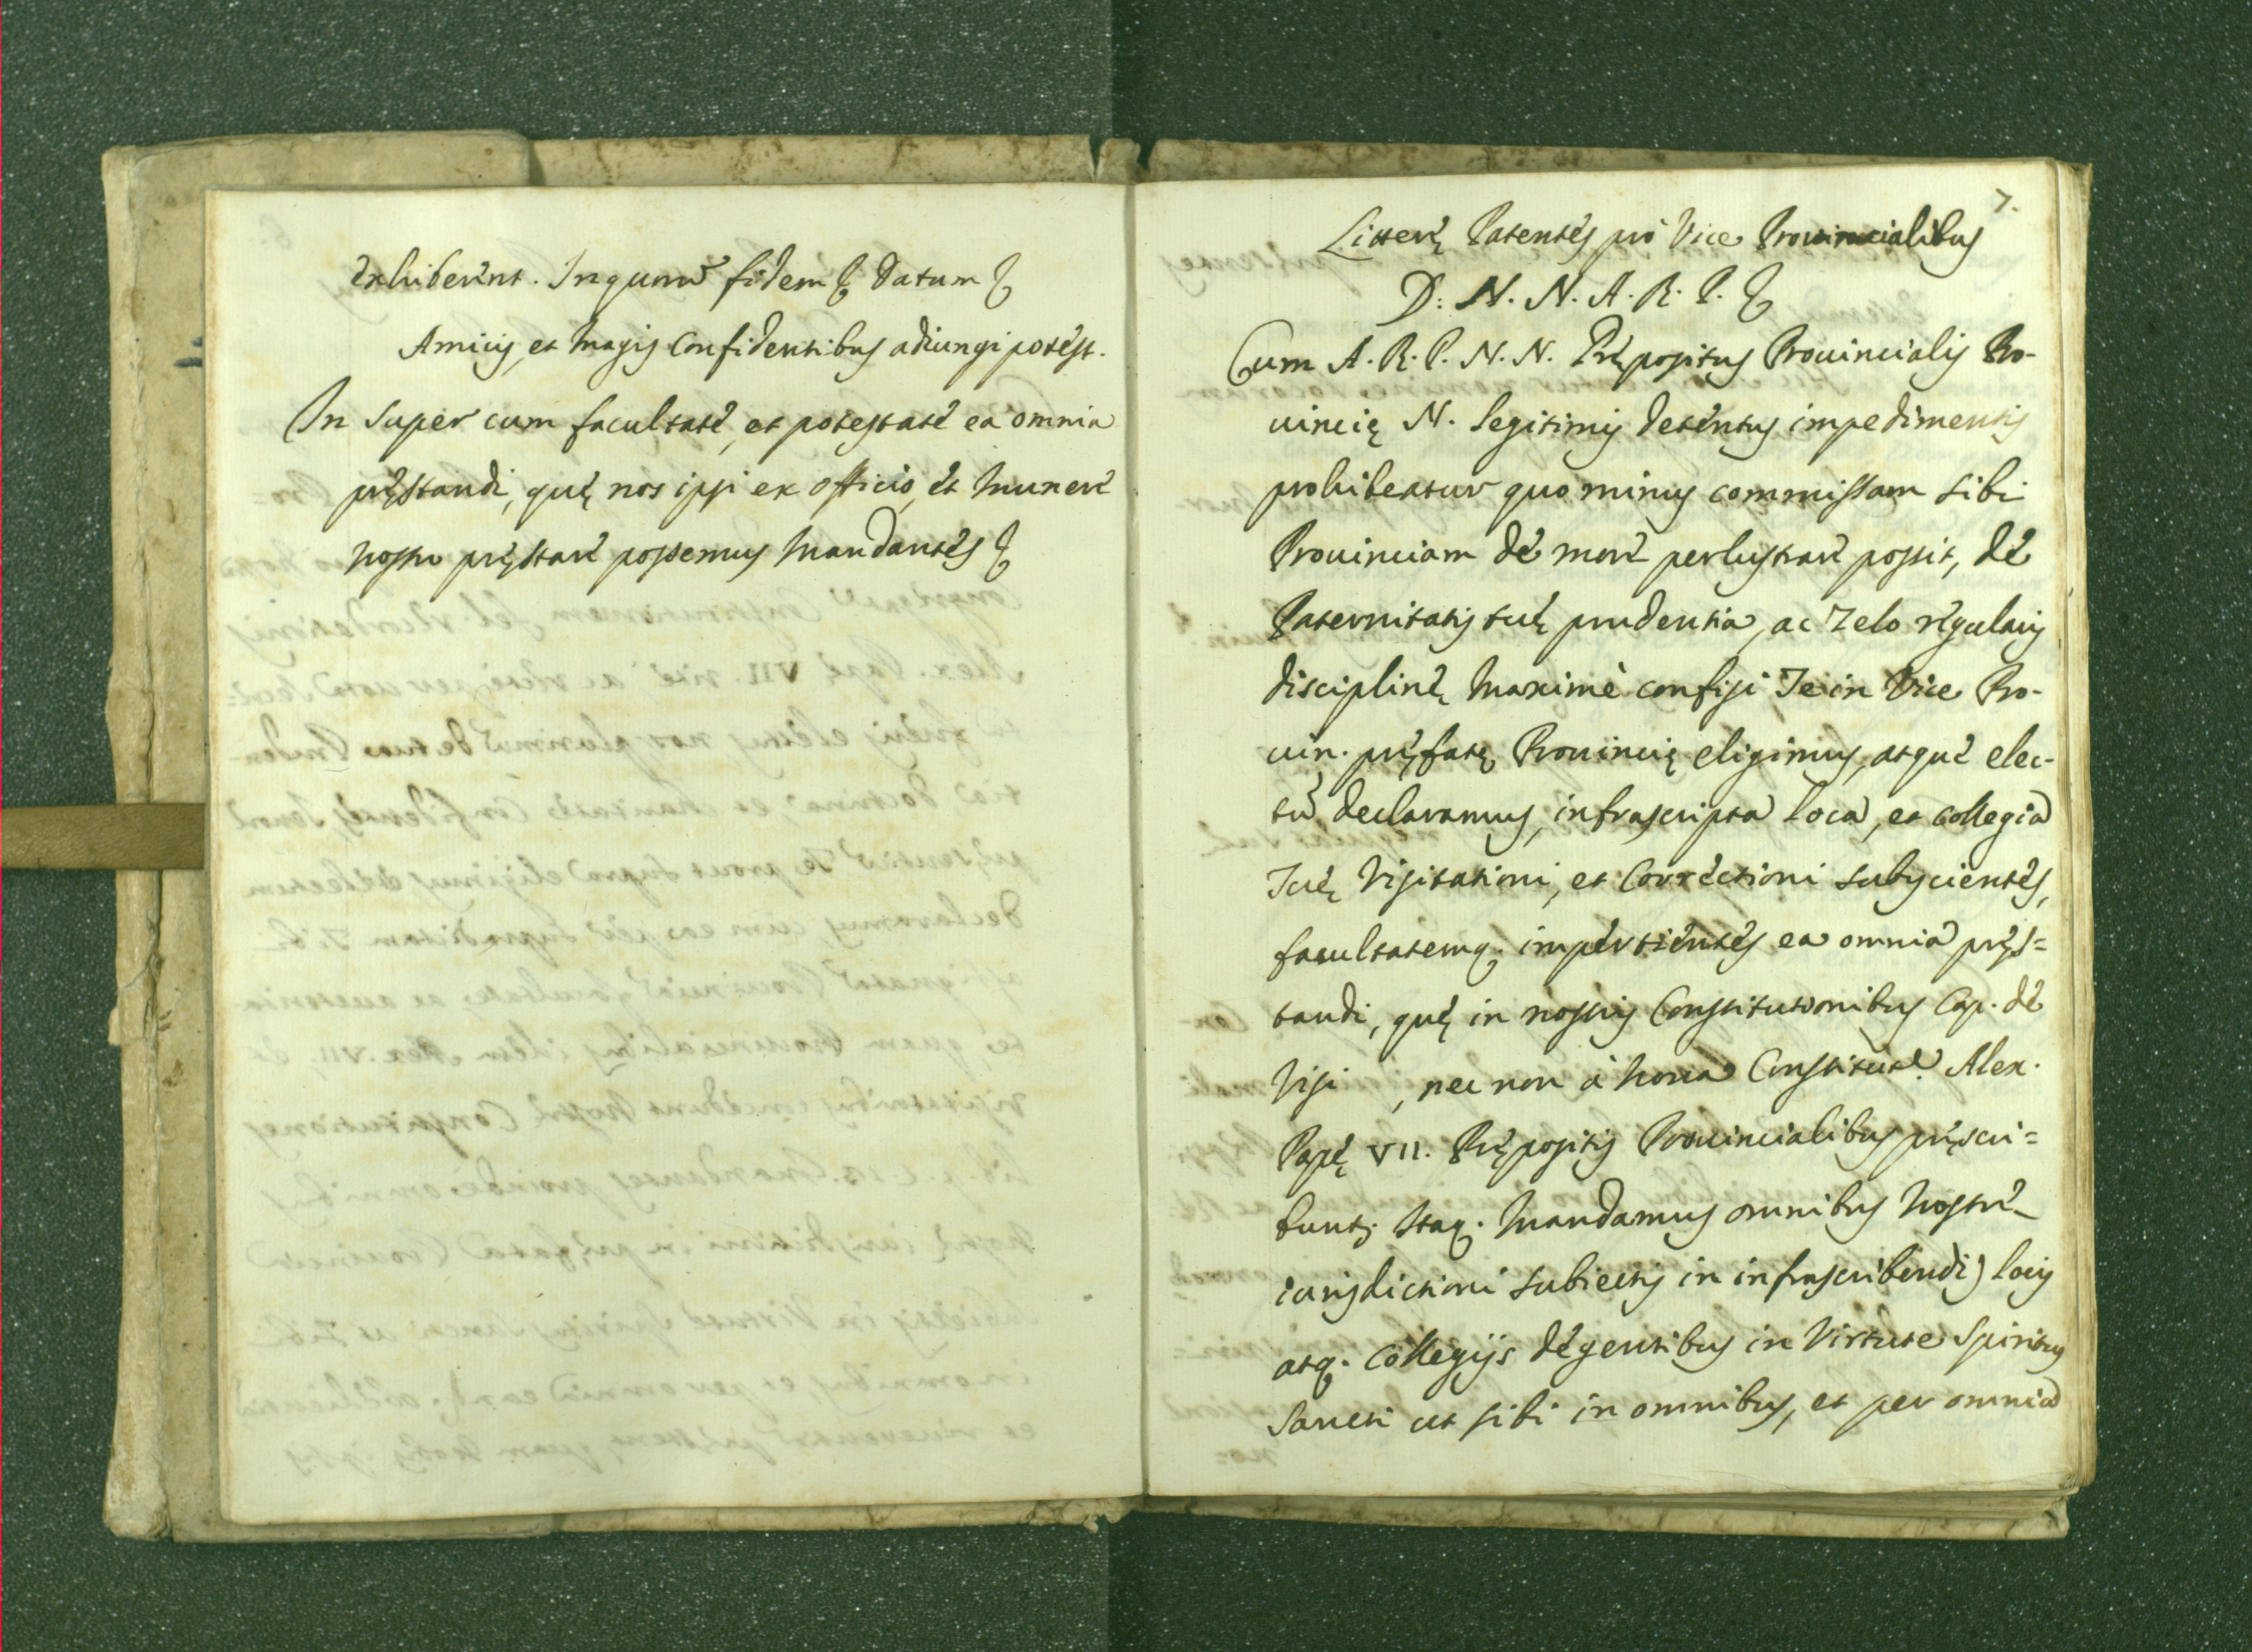 exhiberent. In quorũ fidem &c Datum &c
Amicis, et magis Confidentibus adiungi potest.
In super cum facultate, et potestate ea omnia
pręstandi, quę nos ipsi ex officio, et munere
nostro pręstare possemus mandantes &c
7.
Litterę Patentes pro Vice Prouincialibus
D: N. N. A. R. P. &c
Cum A. R. P. N. N. Prępositus Prouincialis Pro-
uincię N. legitimis detentus impedimentis
prohibeatur quo minus commissam sibi
Prouinciam de more perlustrare possit, de
Paternitatis tuę prudentia, ac zelo regularis
disciplinę maximè confisi Te in Vice Pro-
uin. pręfatę Prouincię eligimus, atque elec-
tũ declaramus, infrascripta loca, et collegia
Tuę Visitationi, et Correctioni subijcientes,
facultatemq. impertientes ea omnia pręs=
tandi, quę in nostris Constitutionibus Cap. de
Visi , nec non à noua Constitut.e Alex.
Papę VII. Prępositis Prouincialibus pręscri=
bunt.r Itaq. mandamus omnibus nostrę
iurisdictioni subiectis in infrascribendis locis
atq. Collegijs degentibus in Virtute Spiritus
Sancti ut sibi in omnibus, et per omnia